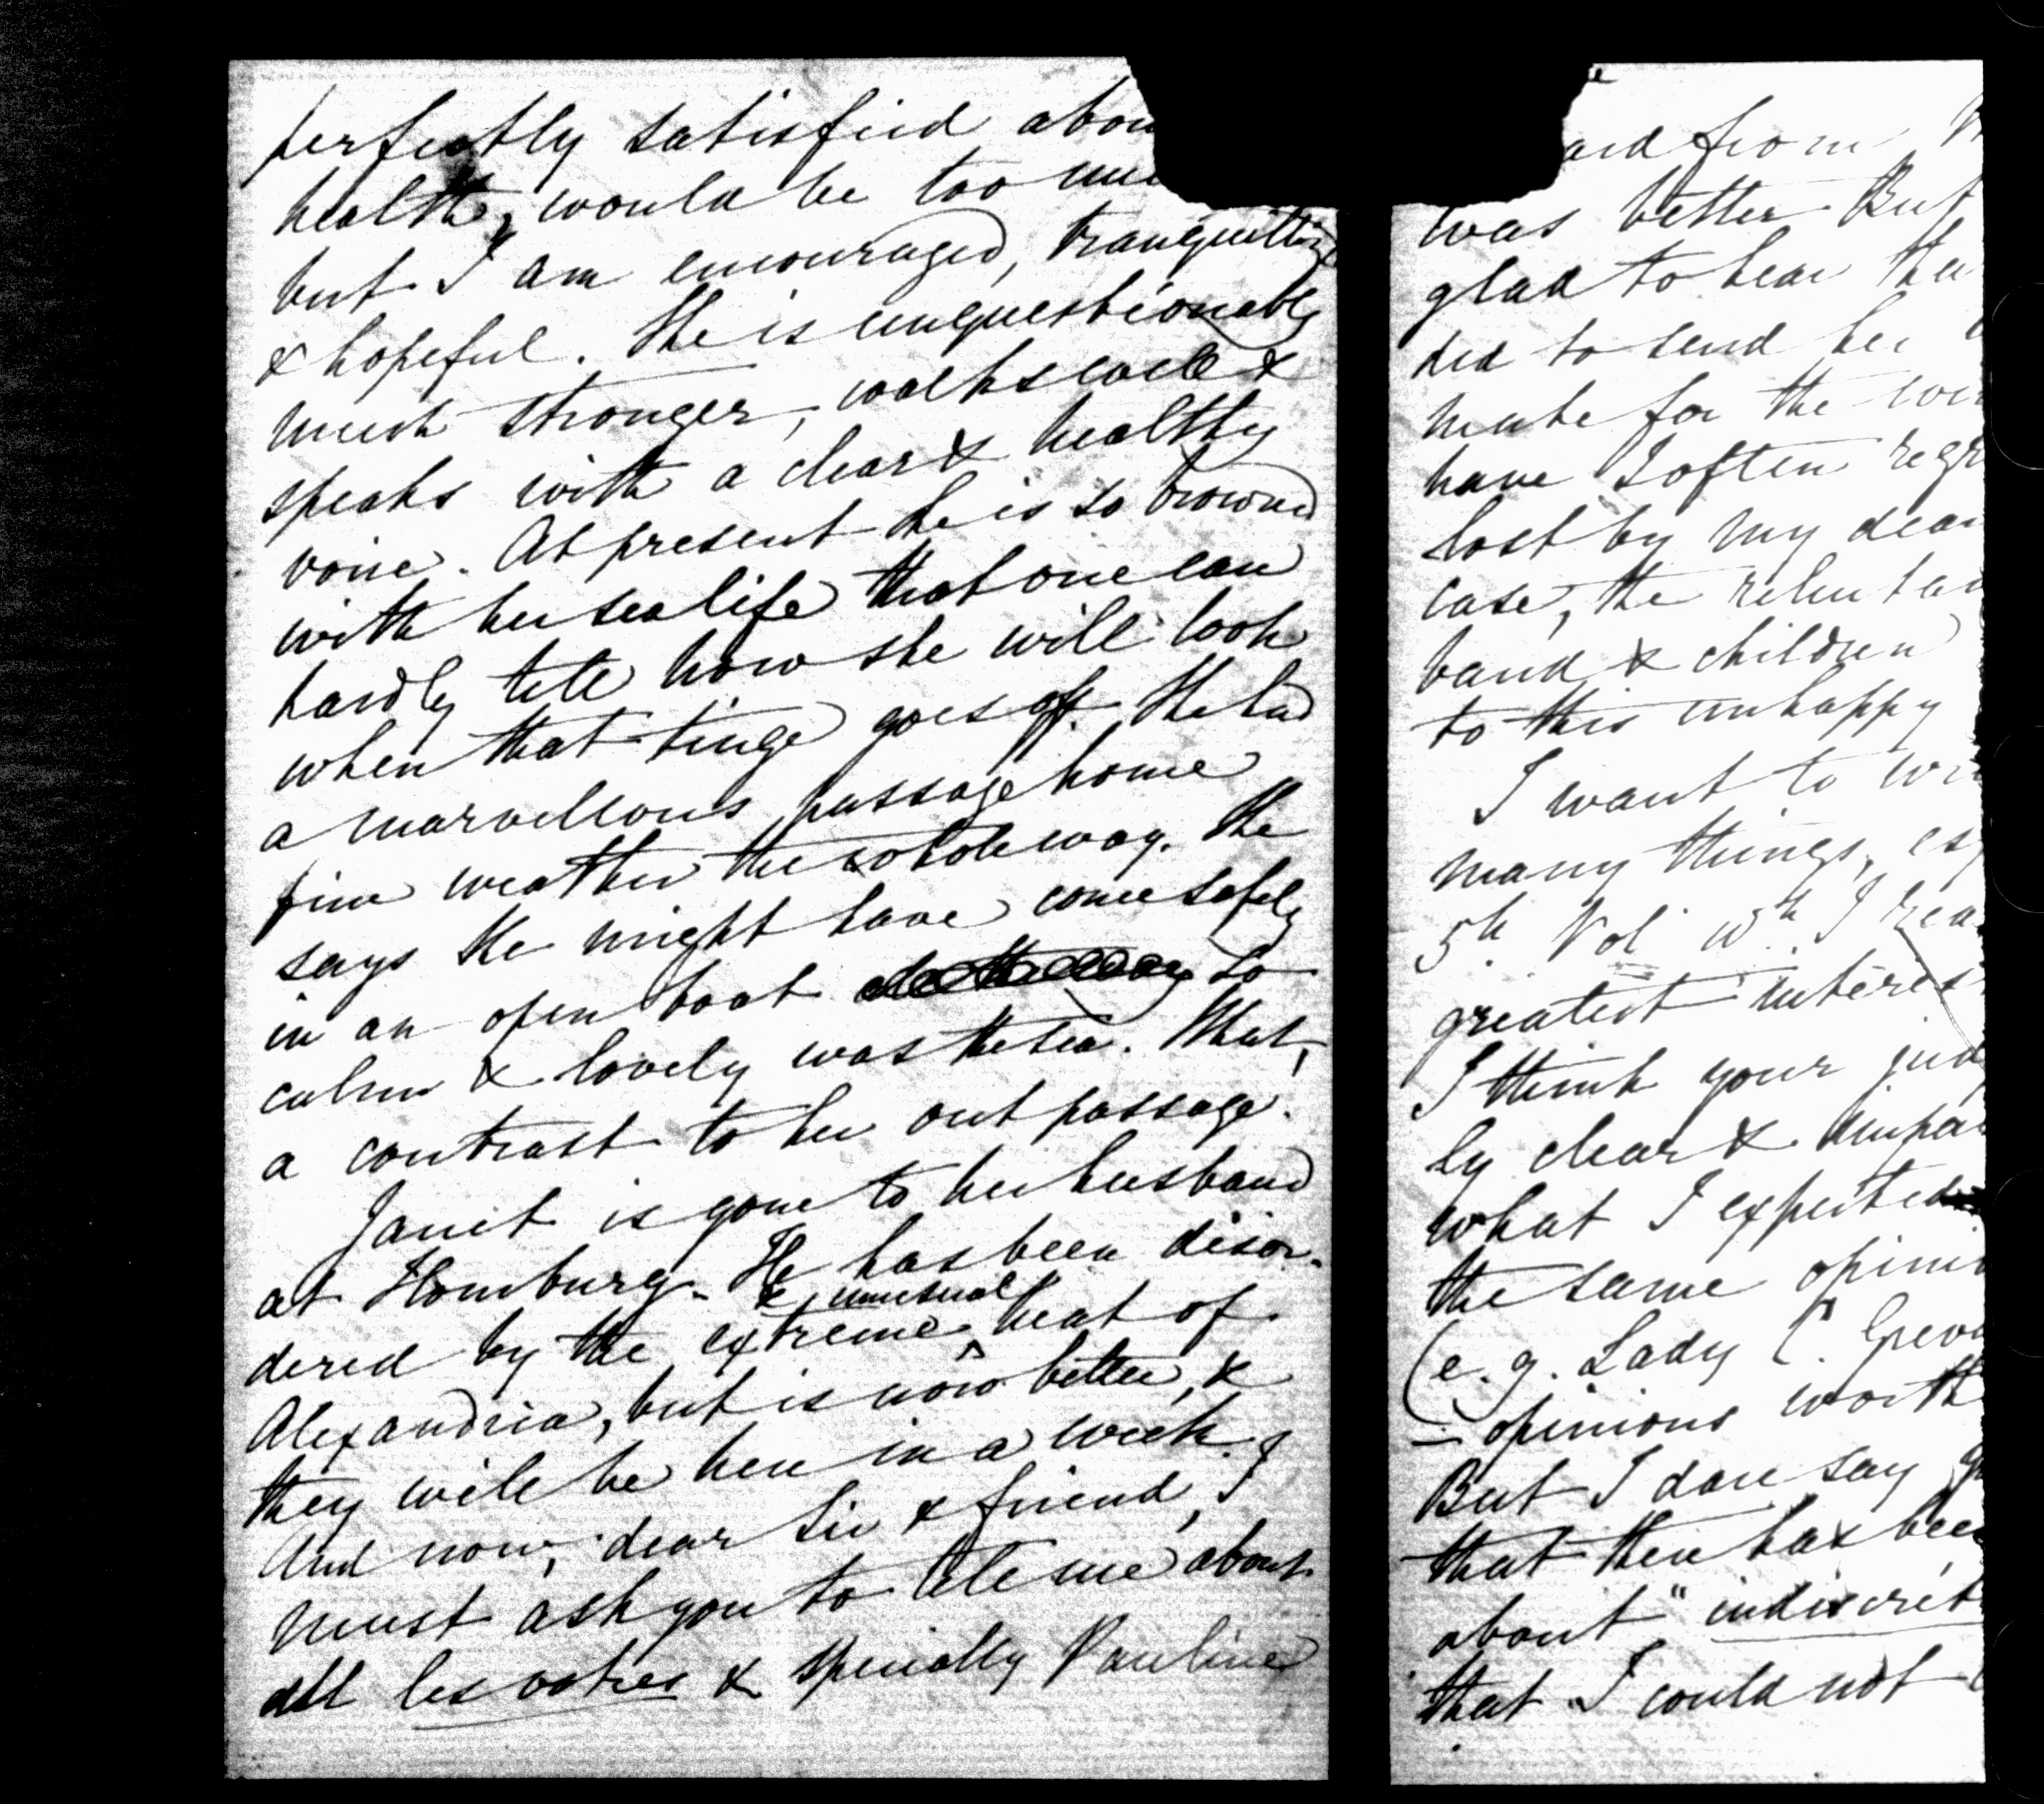 perfectly satisfied abou
health, would be too mu
but I am encouraged, tranquillize
& hopeful. She is unquestionably
much stronger, walks well &
speaks with a clear & healthy
voice. At present she is so browned
with her sea life that one can
hardly tell how she will look
when that tinge goes off. She had
a marvellous passage home
fine weather the whole way. She
says she might have come safely
in an open boat so
calm & lovely was the sea. What
a contrast to her out passage.
Janet is gone to her husband
at Homburg. He has been disor-
dered by the extreme & unusual heat of
Alexandria, but is now better, &
they will be here in a week.
And now, dear Sir & friend, I
must ask you to tell me about
all les votres & specially Pauline
ard from
was better But
glad to hear tha
did to send her
make for the
have I often regr
lost by my dear
case, the reluctan
band & children
to this unhappy
I want to wri
many things, esp
5th Vol wh I rea
greatest interest
I think your jud
ly clear & impar
what I expected
the same opini
(e.g. Lady C. Grev
– opinions worth
But I dare say
that there has bee
about "indiscret
that I could not